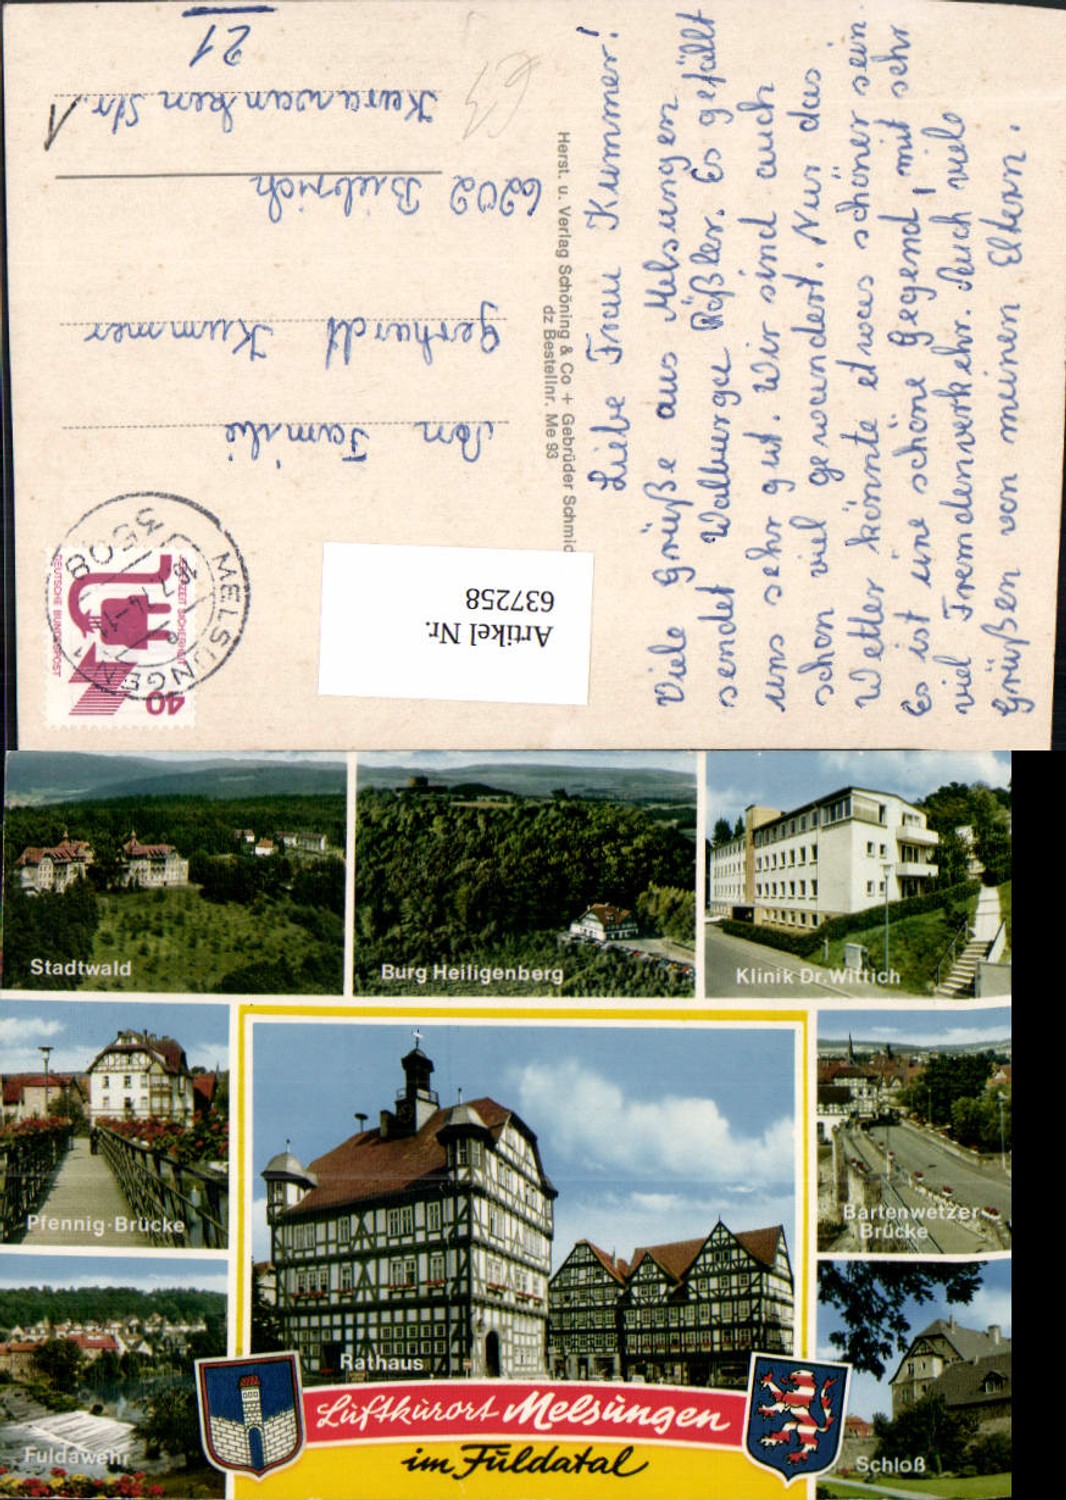 21
Karawanken Str. 1
6202 Biebrich
Gerhardt Kummer
Familie
Herst. u. Verlag Schöning & Co + Gebrüder Schmid
dz Bestellnr. Me 93
Liebe Frau Kummer!
Viele Grüße aus Melsungen
sendet Walburga Rößler. Es gefällt
uns sehr gut. Wir sind auch
schon viel gewandert. Nur das
Wetter könnte etwas schöner sein.
Es ist eine schöne Gegend, mit sehr
viel Fremdenverkehr. Auch viele
Grüßen von meinen Eltern.
Artikel Nr.
637258
3508 MELSUNGEN 1
JEDERZEIT SICHERHEIT
DEUTSCHE BUNDESPOST
40
Stadtwald
Burg Heiligenberg
Klinik Dr. Wittich
Pfennig-Brücke
Bartenwetzer-
Brücke
Rathaus
Fuldawehr
Schloß
Luftkurort Melsungen
im Fuldatal